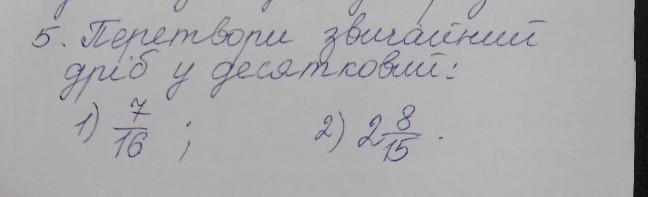 5. Перетвори звичайний
дріб у десятковий:
1) 7/16 ; 2) 2 8/15.